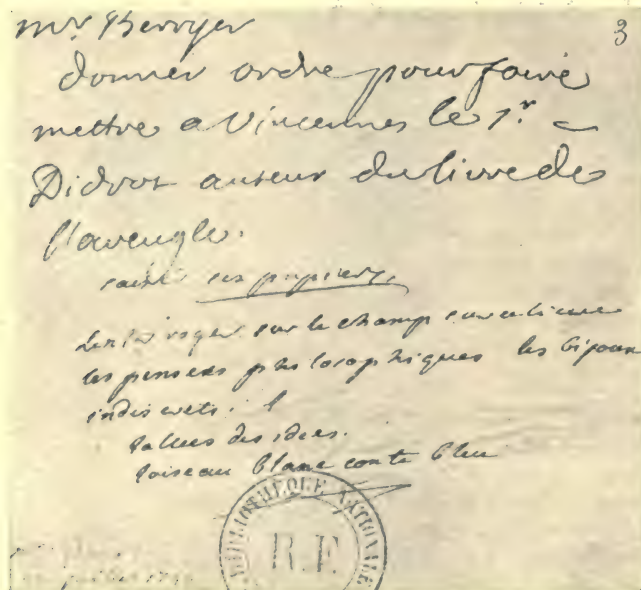 mr Berryer
3
donner ordre pour faire
mettre a Vincennes le Sr
Didrot auteur du livre de
l'aveugle.
saisir ses papiers,
sur le champ
les pensees philosophiques les bijoux
indiscrets.
l'allees des idees.
l'oiseau blanc conte bleu
BIBLIOTHEQUE NATIONALE
R.F.